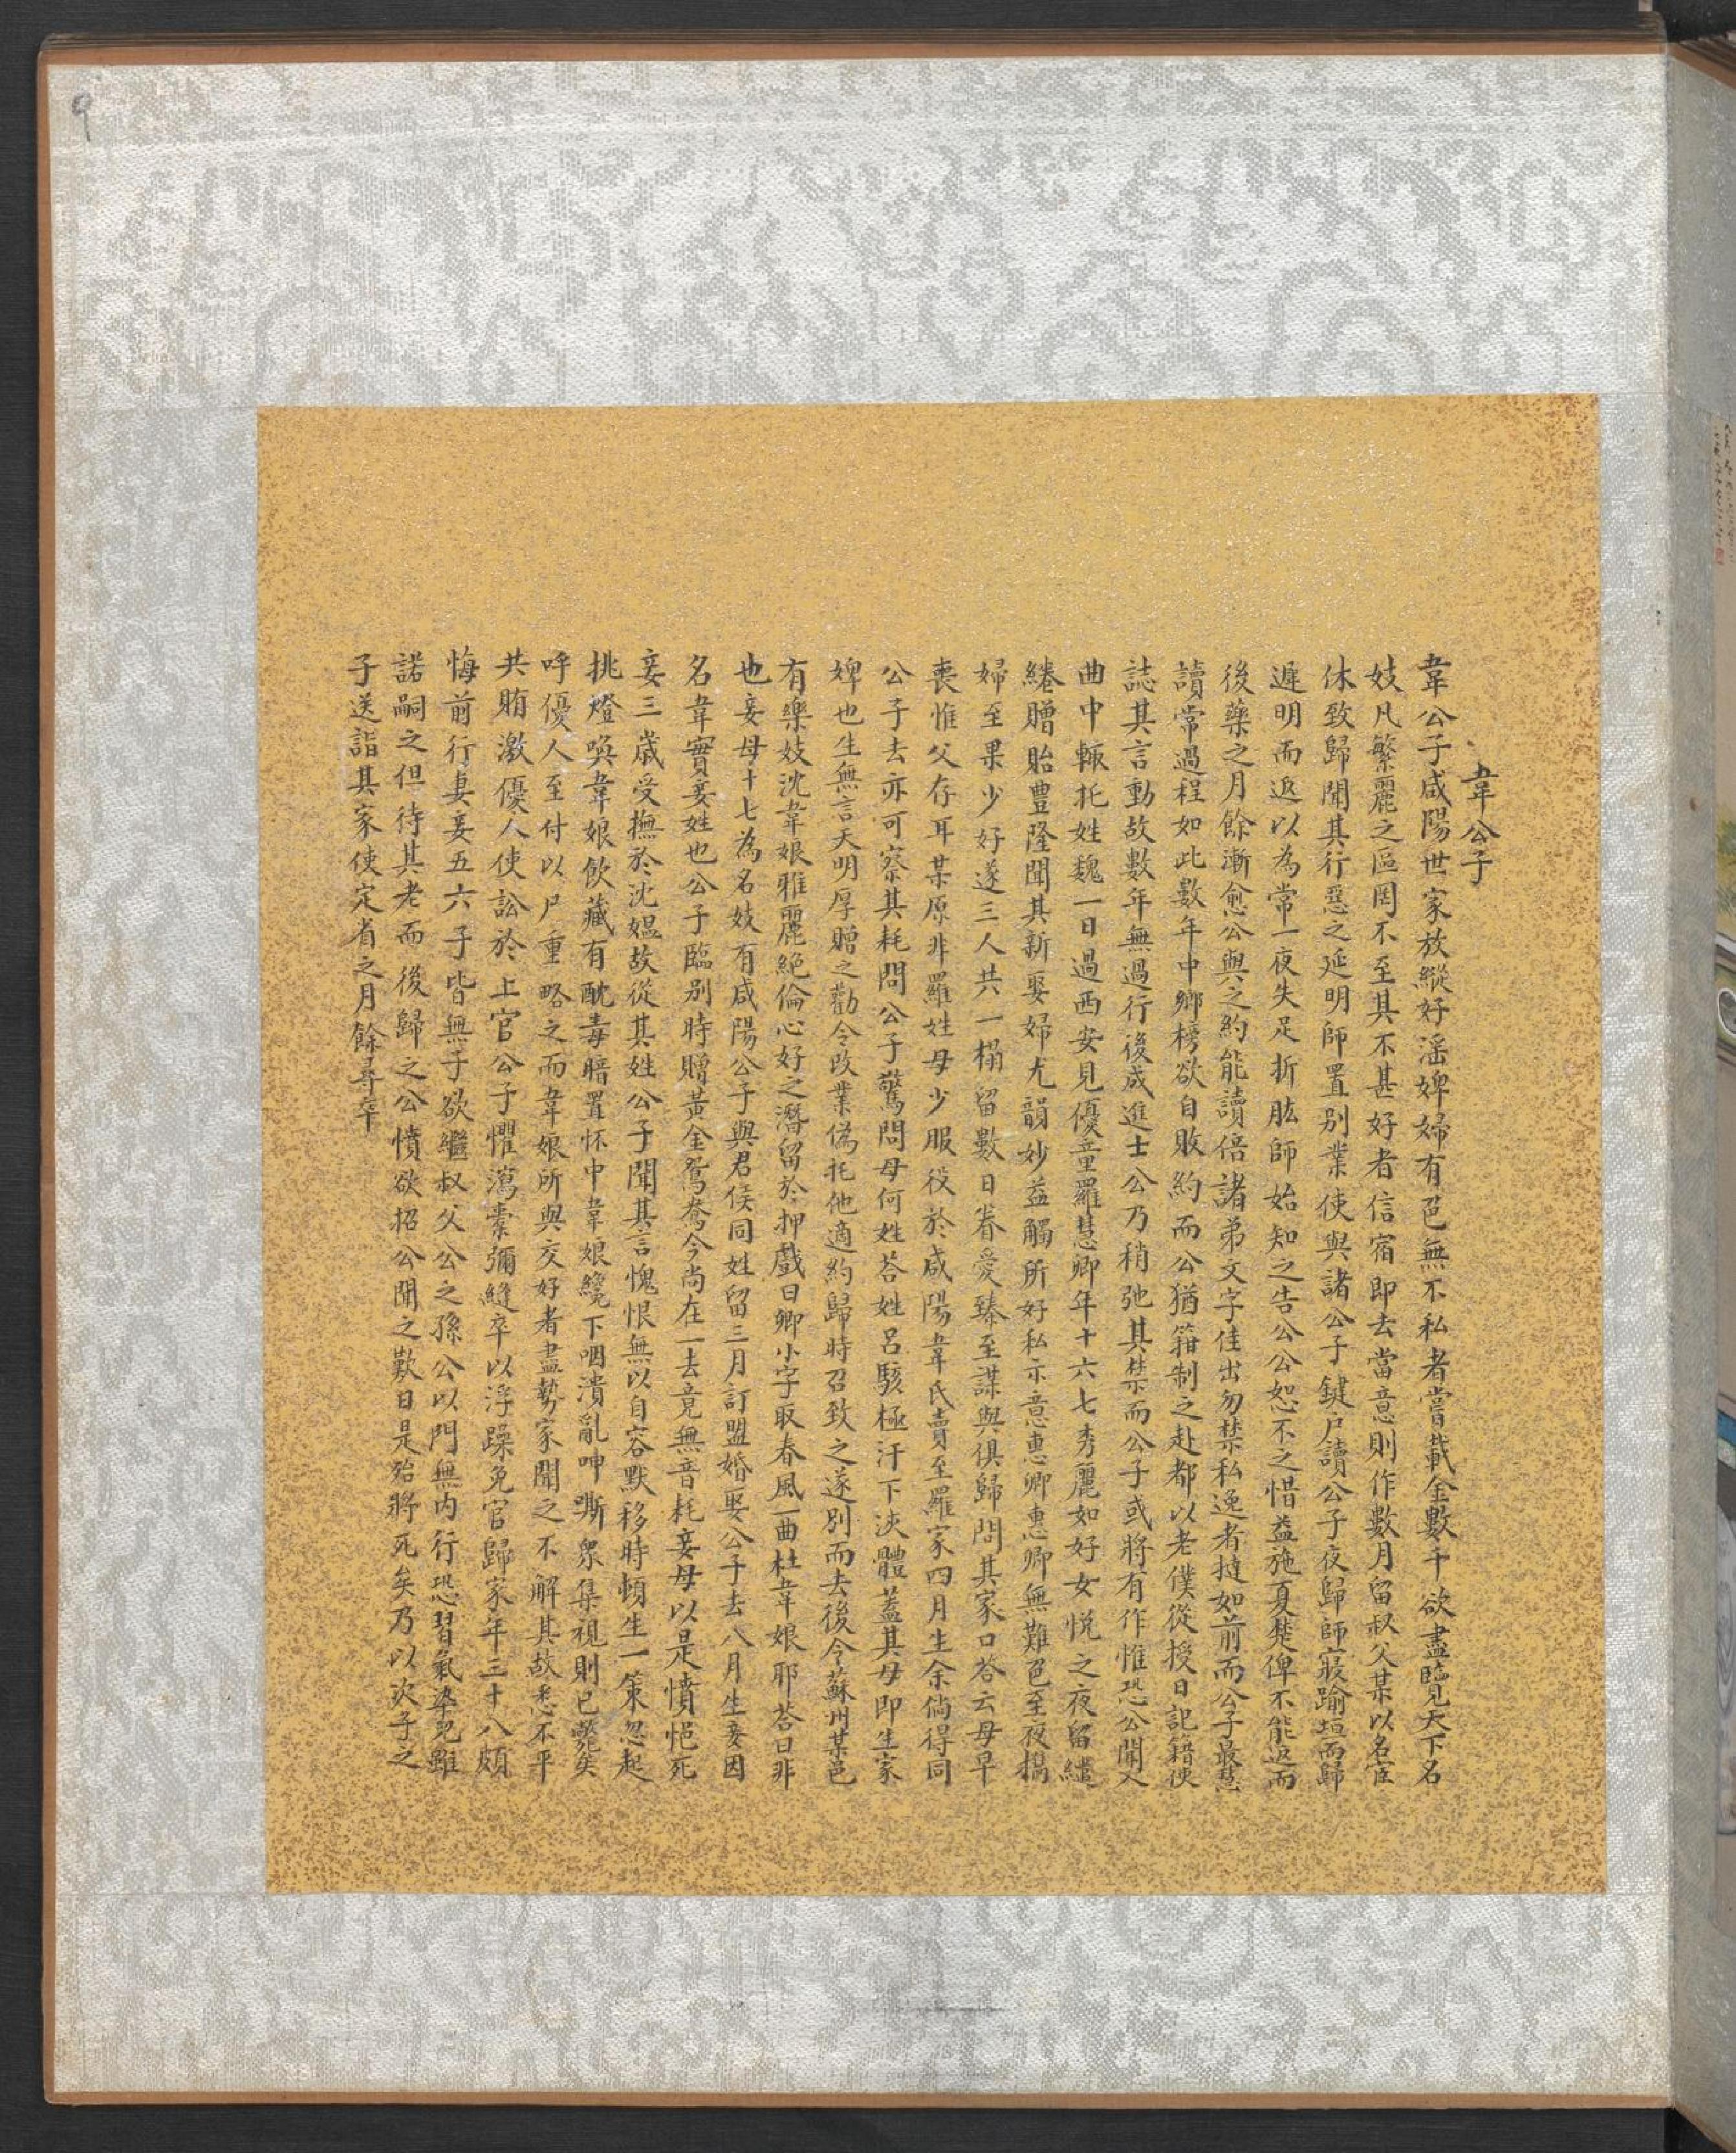 韋公子
韋公子咸陽世家放縱好淫婢婦有色無不私者嘗載金數千欲盡覽天下名
妓凡繁麗之區罔不至其不甚好者信宿即去當意則作數月留叔父某以名宦
休致歸聞其行惡之延明師置别業使與諸公子鍵户讀公子夜歸師寢踰垣而歸
遲明而返以為常一夜失足折肱師始知之告公公恕不之惜益施夏楚俾不能返而
後藥之月餘漸愈公與之約能讀倍諸弟文字佳出勿禁私逸者撻如前而公子最慧
讀常過程如此數年中鄉榜欲自敗約而公猶箝制之赴都以老僕從授日記籍使
誌其言動故數年無過行後成進士公乃稍弛其禁而公子或將有作惟恐公聞入
曲中輒托姓魏一日過西安見優童羅慧卿年十六七秀麗如好女悅之夜留繾
綣贈貽豊隆聞其新娶婦尤韻妙益觸所好私示意惠卿惠卿無難色至夜携
婦至果少好遂三人共一榻留數日眷愛臻至謀與俱歸問其家口荅云母早
喪惟父存耳某原非羅姓母少服役於咸陽韋氏賣至羅家四月生余倘得同
公子去亦可察其耗問公子驚問母何姓荅姓呂駭極汗下浹體蓋其母即生家
婢也生無言天明厚贈之勸令改業偽托他適約歸時召致之遂別而去後令蘇州某邑
有樂妓沈韋娘雅麗絶倫心好之潛留於押戲曰卿小字取春風一曲杜韋娘耶荅曰非
也妾母十七為名妓有咸陽公子與君侯同姓留三月訂盟婚娶公子去八月生妾因
名韋實妾姓也公子臨别時贈黃金鴛鴦今尚在一去竟無音耗妾母以是憤悒死
妾三歲受撫於沈媼故從其姓公子聞其言愧恨無以自容默移時頓生一策忽起
挑燈喚韋娘飲藏有酖毒暗置怀中韋娘纔下咽潰亂呻嘶衆集視則已斃矣
呼優人至付以尸重略之而韋娘所與交好者盡勢家聞之不解其故悉不平
共賄激優人使訟於上官公子懼瀉橐彌縫卒以浮躁免官歸家年三十八頗
悔前行妻妾五六子皆無子欲繼叔父公之孫公以門無内行恐習氣染兒雖
諾嗣之但待其老而後歸之公憤欲招公聞之歎曰是殆將死矣乃以次子之
子送詣其家使定省之月餘尋卒
9